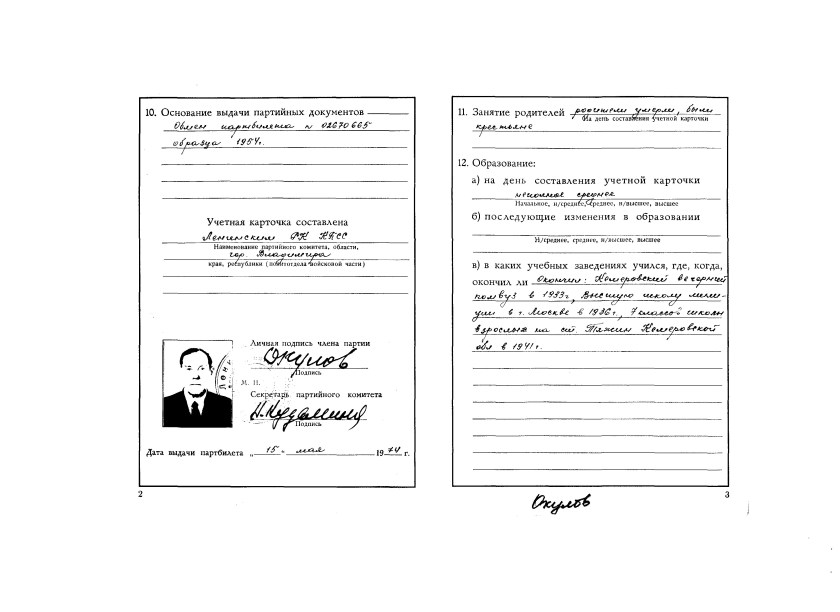 10. Основание выдачи партийных документов
Обмен партбилета N 02670665
образца 1954г.
Учетная карточка составлена
Ленинским РК КПСС
Наименование партийного комитета, области,
гор. Владимира
края, республики (политотдела войсковой части)
Личная подпись члена партии
Окулов
Подпись
М. П.
Секретарь партийного комитета
Подпись
Дата выдачи партбилета „ 15 " мая 1974 г.
2
11. Занятие родителей родители умерли, были
На день составления учетной карточки
крестьяне
12. Образование:
а) на день составления учетной карточки
неполное среднее
Начальное, н/среднее, среднее, н/высшее, высшее
б) последующие изменения в образовании
Н/среднее, среднее, н/высшее, высшее
в) в каких учебных заведениях учился, где, когда,
окончил ли Окончил: Кемеровский вечерний
комвуз в 1933г, Высшую школу мили-
ции в г. Москве в 1936г., 7 классов школы
взрослых на ст. Тяжин Кемеровской
обл в 1941г.
3
Окулов